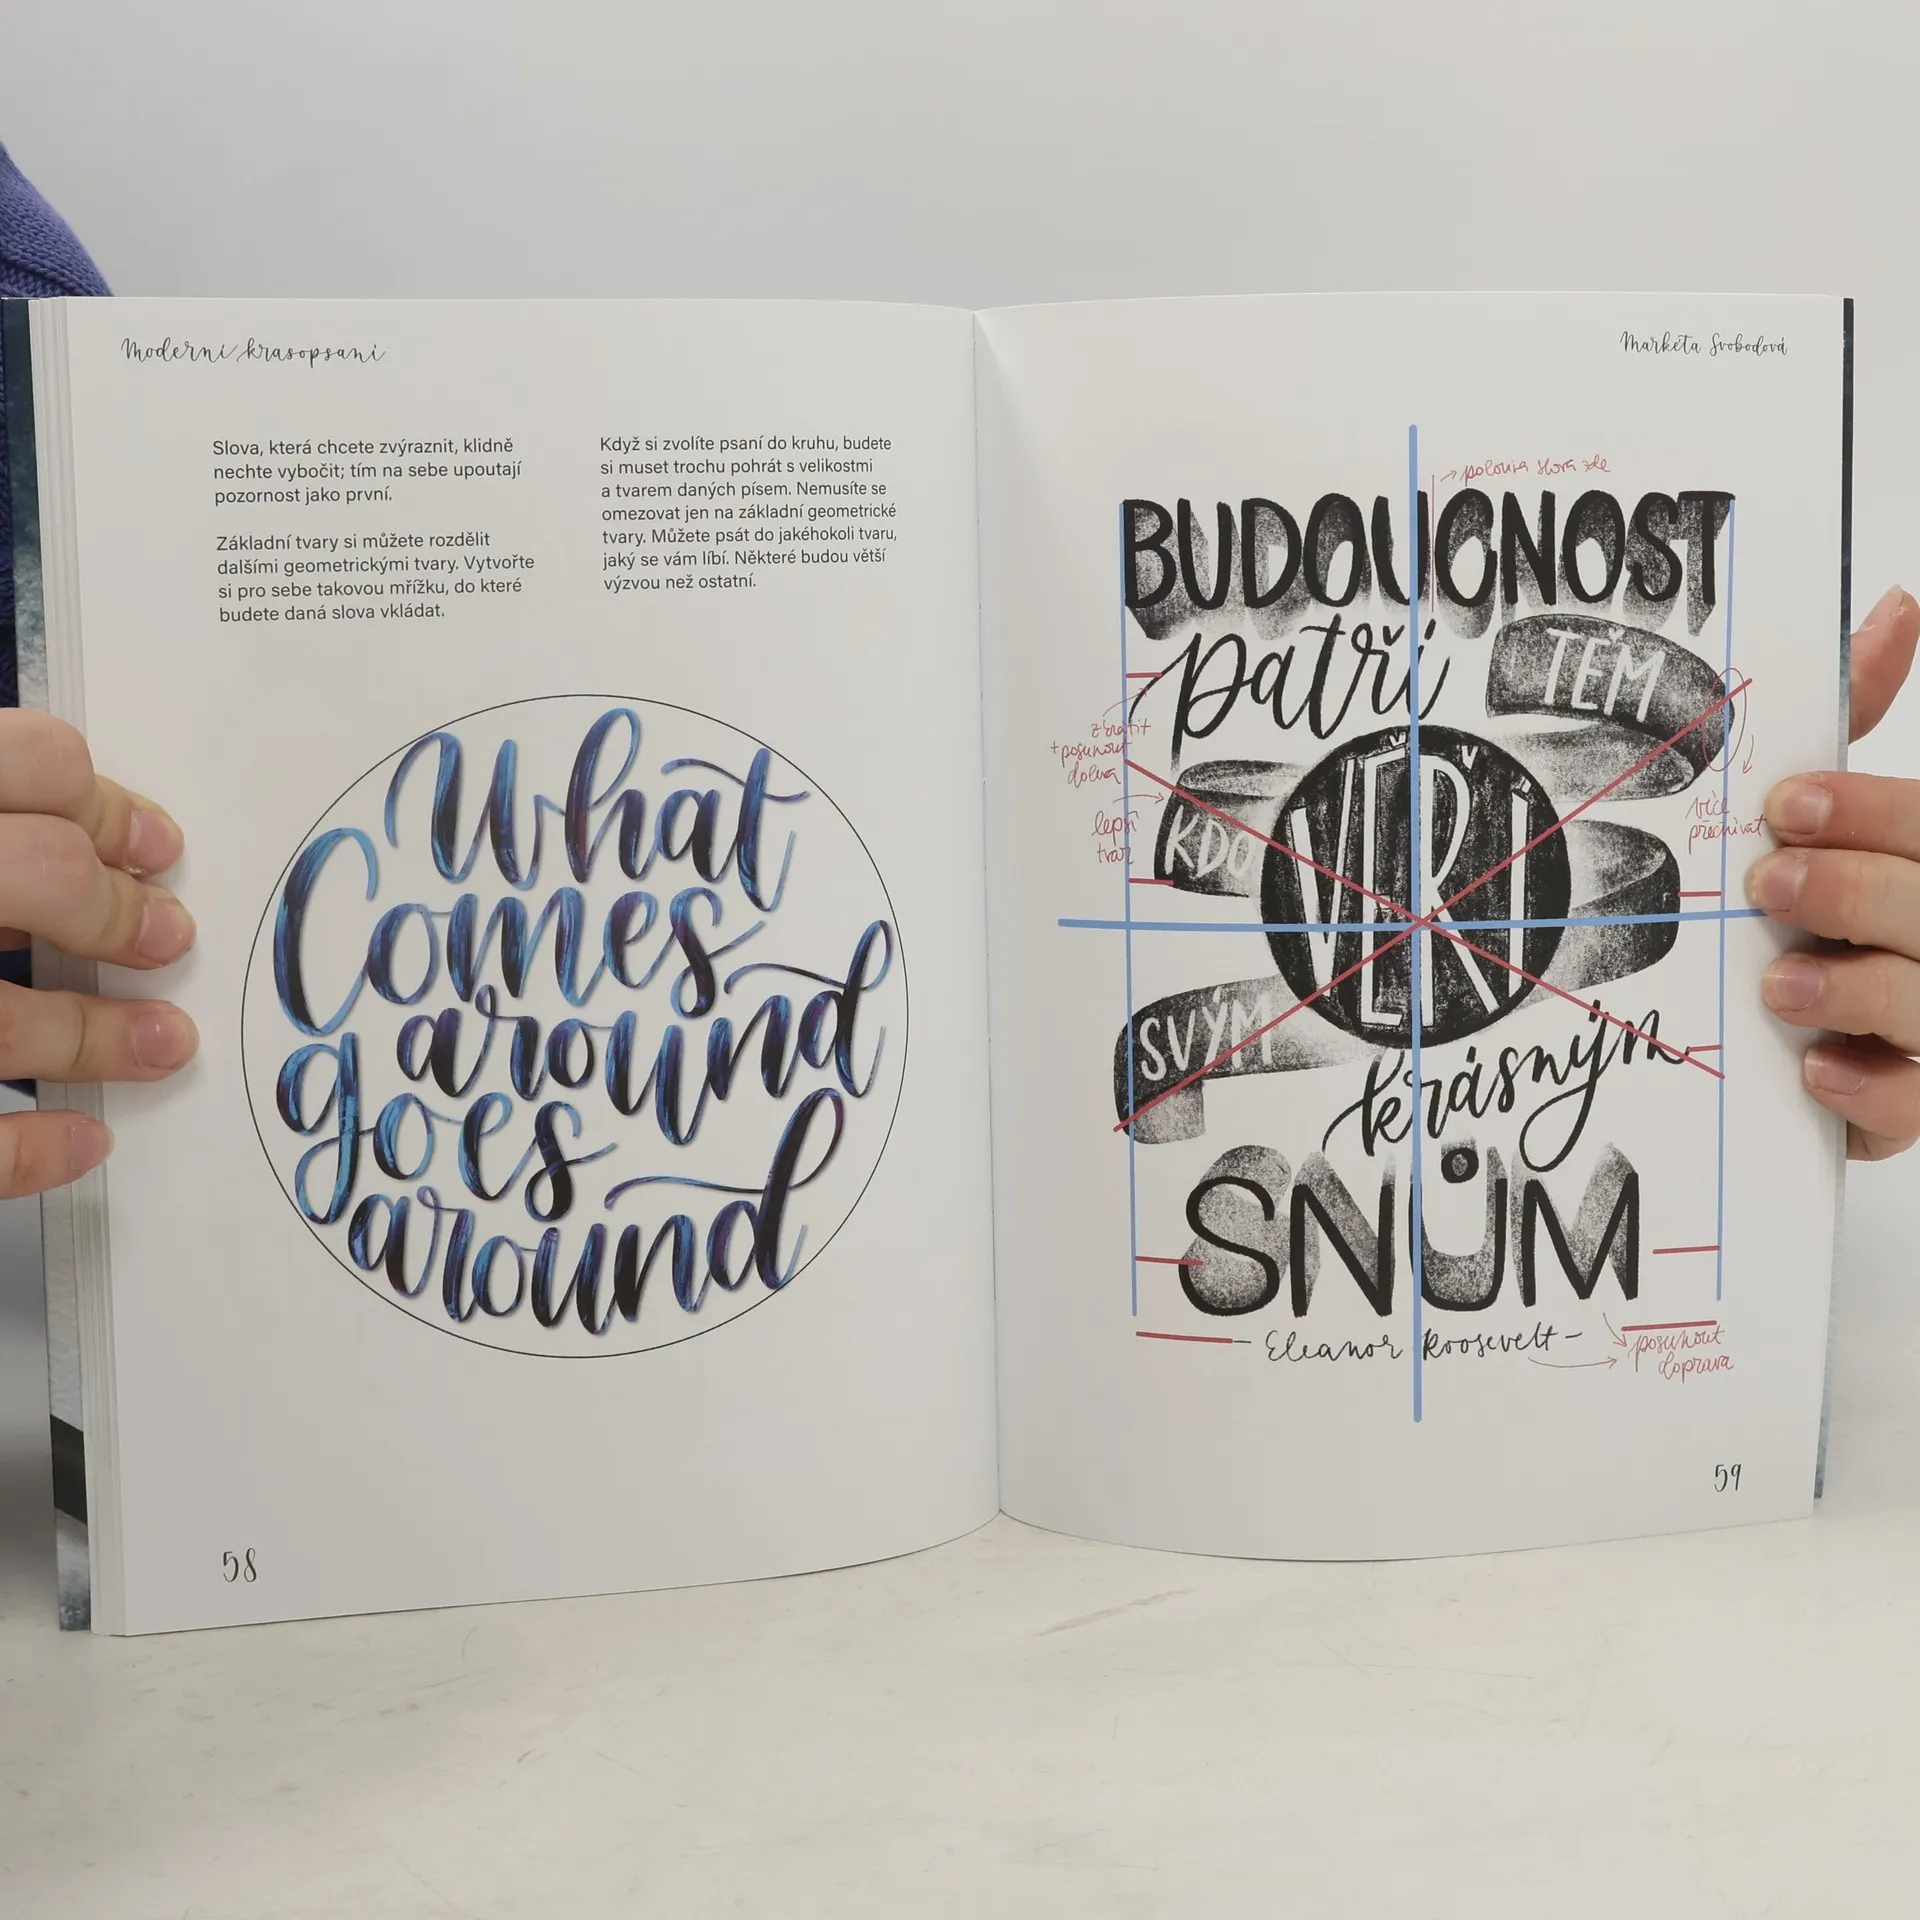 Moderní krasopsaní
Slova, která chcete zvýraznit, klidně
nechte vybočit; tím na sebe upoutají
pozornost jako první.
Základní tvary si můžete rozdělit
dalšími geometrickými tvary. Vytvořte
si pro sebe takovou mřížku, do které
budete daná slova vkládat.
Když si zvolíte psaní do kruhu, budete
si muset trochu pohrát s velikostmi
a tvarem daných písem. Nemusíte se
omezovat jen na základní geometrické
tvary. Můžete psát do jakéhokoli tvaru,
jaký se vám líbí. Některé budou větší
výzvou než ostatní.
What
Comes
around
goes
around
58
Markéta Svobodová
polovina slova zde
BUDOUCNOST
patří
TĚM
zkrátit
+ posunout
dolů
lepší
tvar
KDO
VĚŘÍ
více
přečnívat
SVÝM
krásným
SNŮM
- Eleanor Roosevelt -
posunout
doprava
59